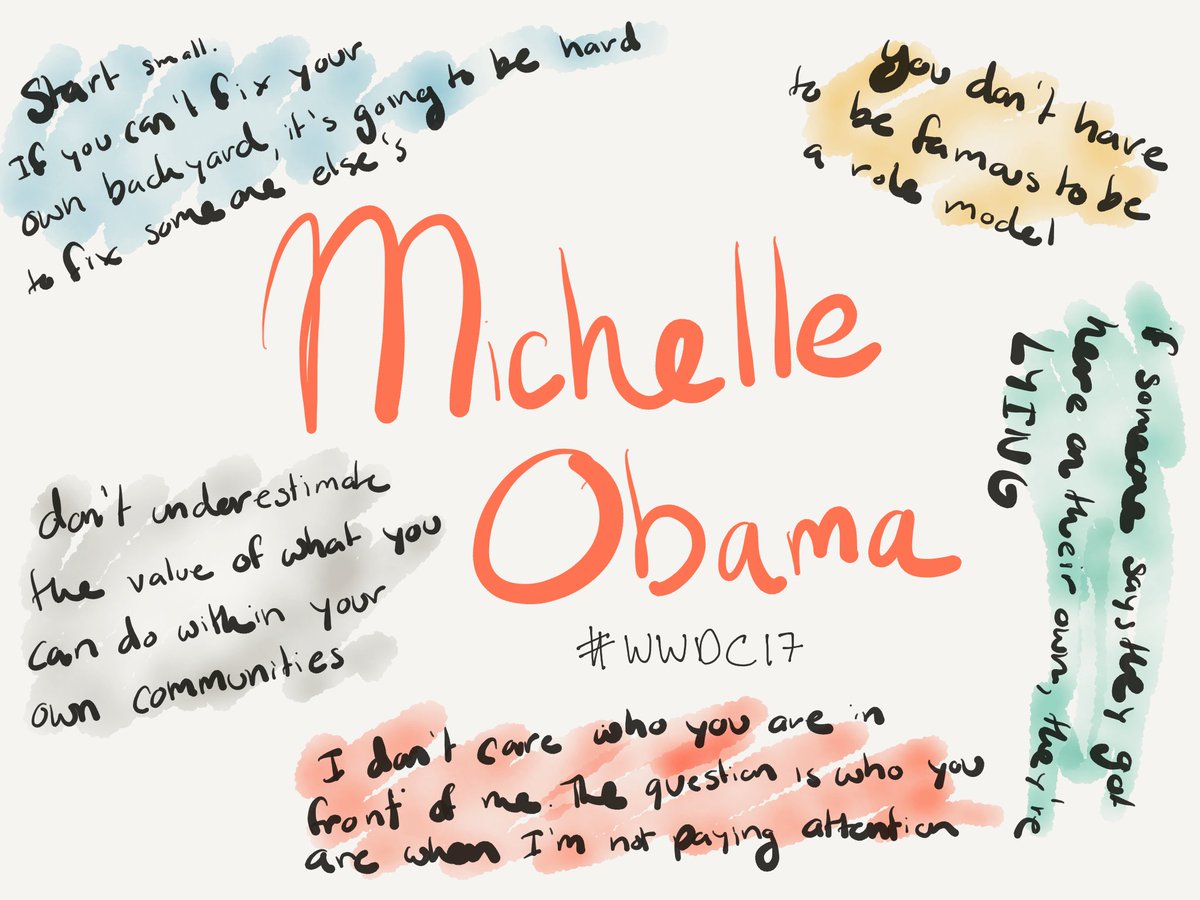 Start small.
If you can't fix your
own backyard, it's going to be hard
to fix someone else's
You don't have
to be famous to be
a role model
Michelle
Obama
#WWDC17
if someone says they got
here on their own, they're
LYING
don't underestimate
the value of what you
can do within your
own communities
I don't care who you are in
front of me. The question is who you
are when I'm not paying attention